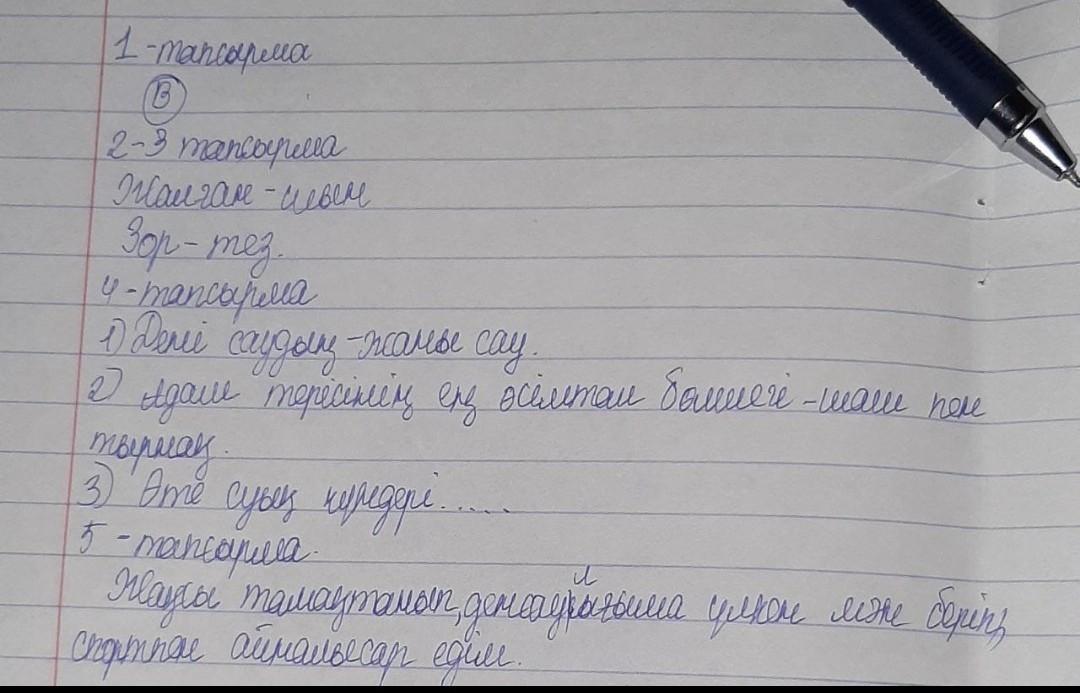 1-тапсырма
В
2-3 тапсырма
Жалған - шын
Зор - тез.
4-тапсырма
1) Дені саудың - жаны сау.
2) Адам терісінің ең өсімтал бөлшегі - шаш пен
тырнақ.
3) Өте суық күндері.....
5 - тапсырма.
Жақсы тамақтанып, денсаулығыма үлкен мән беріп,
спортпен айналысар едім.